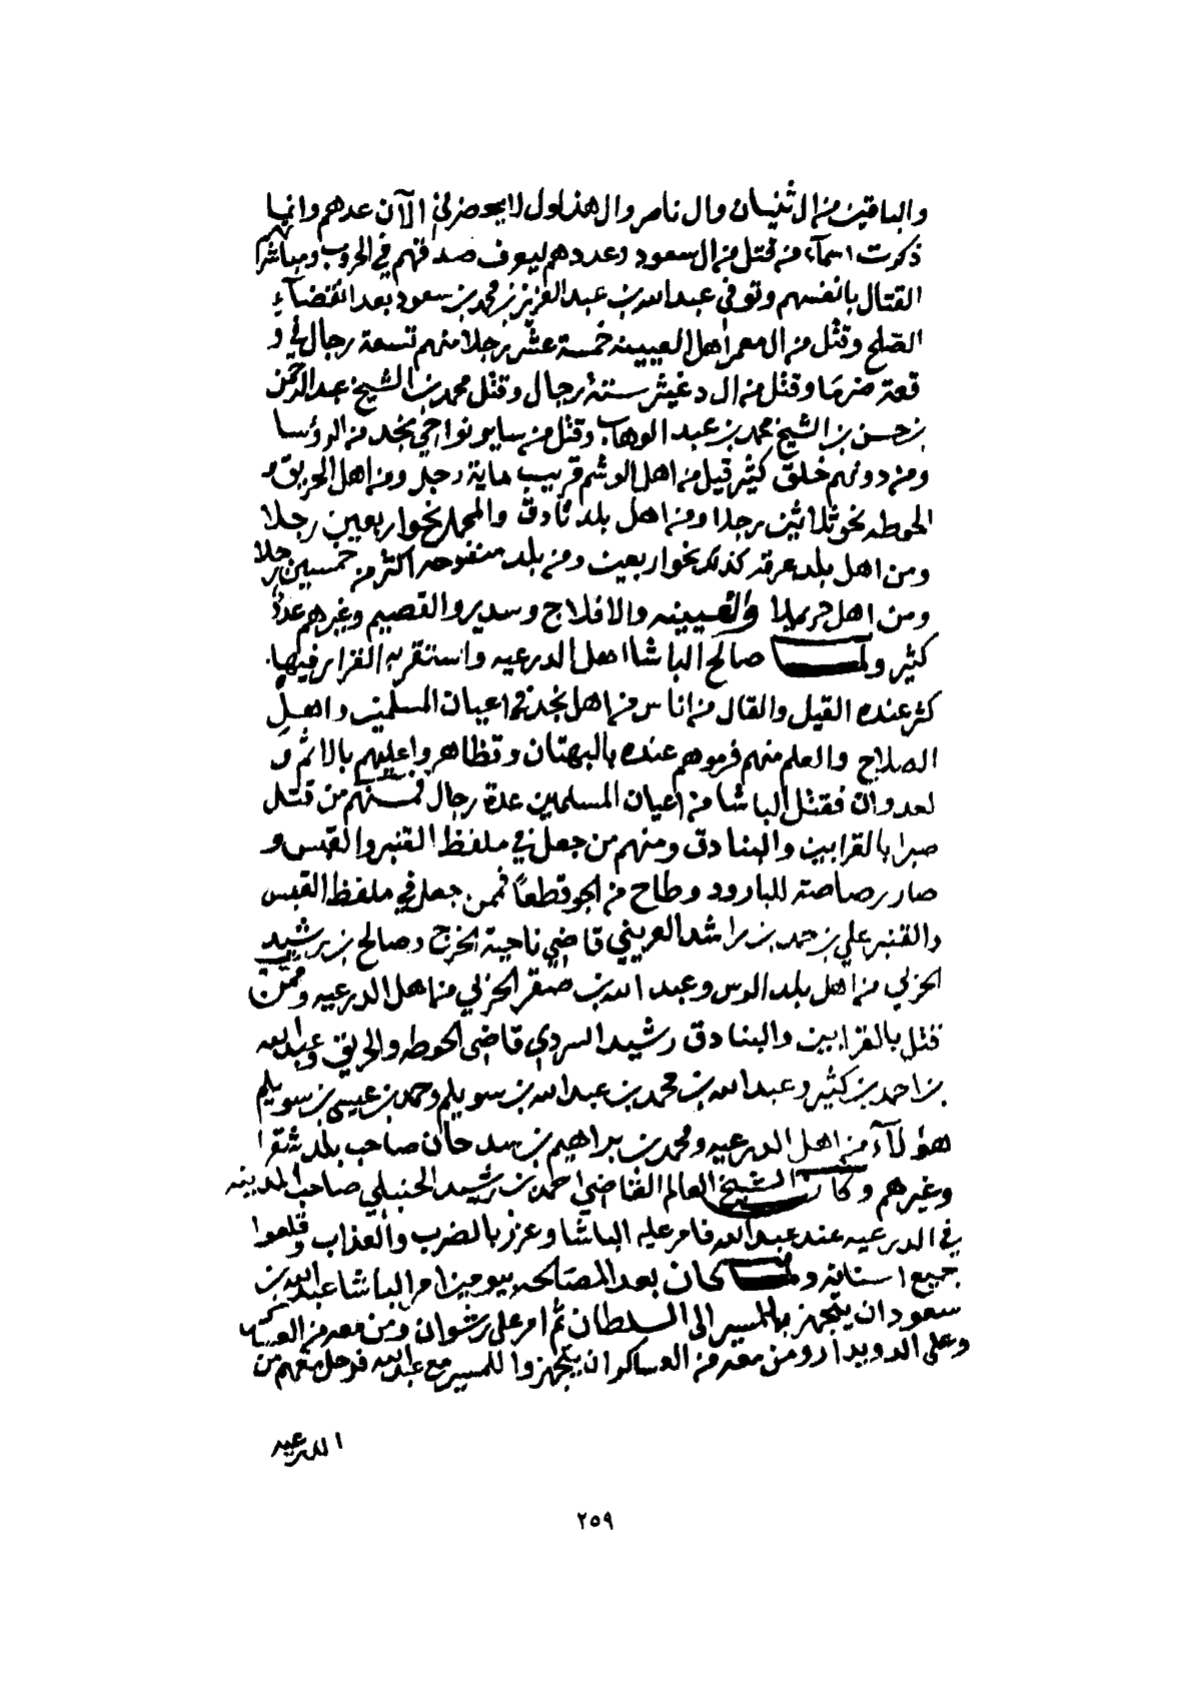 والباقين من ال ثنيان وال ناصر وال هذلول لا يحضرني الآن عدهم وانما
ذكرت اسمآء من قتل من ال سعود وعددهم ليعرف صدقهم في الحروب ومباشرتهم
القتال بانفسهم وتوفي عبدالله بن عبدالعزيز بن محمد بن سعود بعد انقضآء
الصلح وقتل من ال معمر اهل العيينه خمسة عشر رجلا منهم تسعة رجال في و
قعة ضرما وقتل من ال دغيثر ستة رجال وقتل محمد بن الشيخ عبدالرحمن
بن حسن بن الشيخ محمد بن عبد الوهاب وقتل من ساير نواحي نجد من الرؤسا
ومن دونهم خلق كثير قيل من اهل الوشم قريب ماية رجل ومن اهل الحريق و
الحوطه نحو ثلاثين رجلا ومن اهل بلد ثادق والمحمل نحو اربعين رجلا
ومن اهل بلد عرقه كذلك نحو اربعين ومن بلد منفوحه اكثر من خمسين رجلا
ومن اهل حريملا والعيينه والافلاج وسدير والقصيم وغيرهم عدد
كثير ولما صالح الباشا اهل الدرعيه واستقر به القرار فيها
كثر عنده القيل والقال من اناس من اهل نجد في اعيان المسلمين واهل
الصلاح والعلم منهم فرموهم عنده بالبهتان وتظاهروا عليهم بالاثم و
لعدوان فقتل الباشا من اعيان المسلمين عدة رجال فمنهم من قتل
صبرا بالقرابين والبنادق ومنهم من جعل في ملفظ القنبر والقبس و
صار رصاصة للبارود وطاح من الجو قطعاً فممن جعل في ملفظ القبس
والقنبر علي بن حمد بن راشد العريني قاضي ناحية الخرج وصالح بن رشيد
الحزلي من اهل بلد الرس وعبد الله بن صقر الحزلي من اهل الدرعيه وممن
قتل بالقرابين والبنادق رشيد السردي قاضي الحوطه والحريق وعبدالله
بن احمد بن كثير وعبد الله بن محمد بن عبدالله بن سويلم وحمد بن عيسى بن سويلم
هؤلآء من اهل الدرعيه ومحمد بن براهيم بن سدحان صاحب بلد شقرا
وغيرهم وكان الشيخ العالم القاضي احمد بن رشيد الحنبلي صاحب المدينه
في الدرعيه عند عبدالله فامر عليه الباشا وعزر بالضرب والعذاب وقلعوا
جميع اسنانه ولما كان بعد المصالحه بيومين امر الباشا عبدالله بن
سعود ان يتجهز بالمسير الى السلطان ثم امر على رشوان ومن معه من العساكر
وعلى الدويدار ومن معه من العساكر ان يتجهزوا للمسير مع عبدالله فرحل معهم من
الدرعيه
٢٥٩